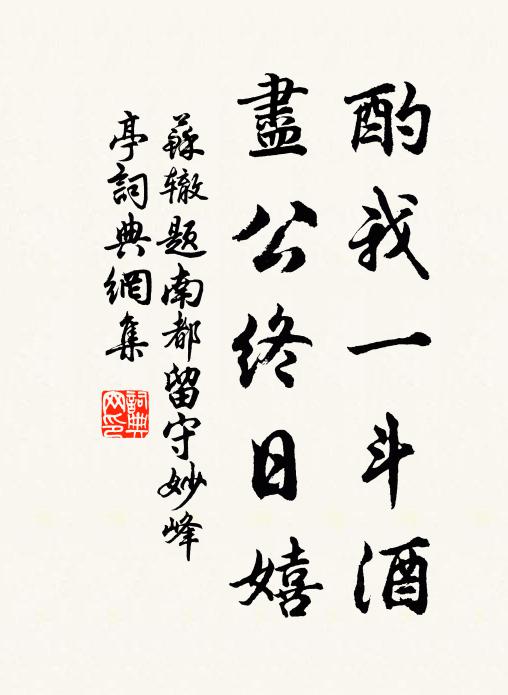 酌我一斗酒
盡公終日嬉
蘇辙题南都留守妙峰
亭詞典網集
詞典网印